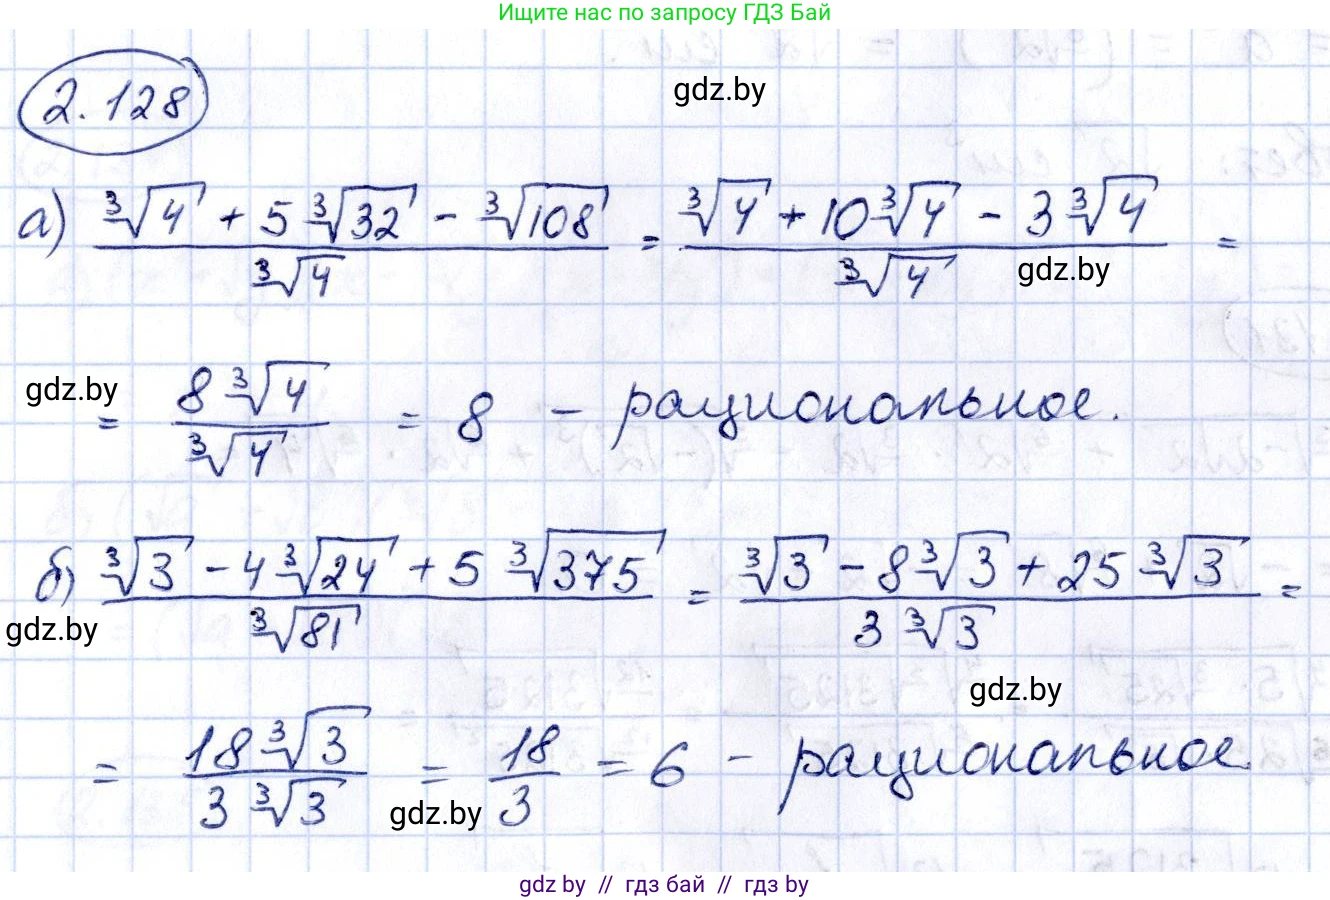 Ищите нас по запросу ГДЗ Бай
2.128
gdz.by
а) (∛4 + 5∛32 - ∛108) / ∛4 = (∛4 + 10∛4 - 3∛4) / ∛4 =
gdz.by
gdz.by
= 8∛4 / ∛4 = 8 - рациональное.
б) (∛3 - 4∛24 + 5∛375) / ∛81 = (∛3 - 8∛3 + 25∛3) / 3∛3 =
gdz.by
gdz.by
= 18∛3 / 3∛3 = 18/3 = 6 - рациональное.
gdz.by
gdz by // гдз бай // гдз by